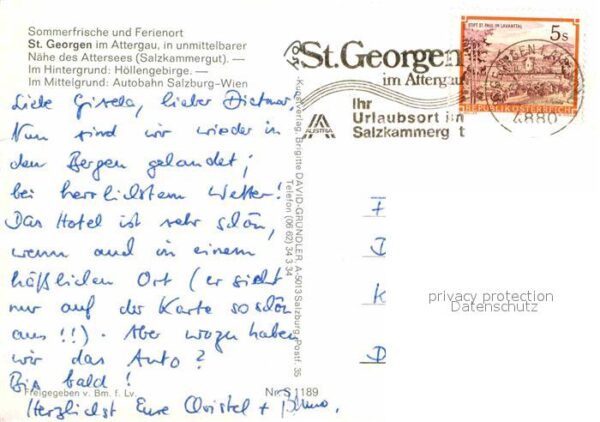 Sommerfrische und Ferienort
St. Georgen im Attergau, in unmittelbarer
Nähe des Attersees (Salzkammergut). —
Im Hintergrund: Höllengebirge. —
Im Mittelgrund: Autobahn Salzburg-Wien
Liebe Gisela, lieber Dietmar,
Nun sind wir wieder in
den Bergen gelandet;
bei herrlichstem Wetter!
Das Hotel ist sehr schön,
wenn auch in einem
häßlichen Ort (er sieht
nur auf der Karte so schön
aus!!). Aber wozu haben
wir das Auto?
Bis bald!
Herzlichst Eure Christel + Bruno.
Freigegeben v. Bm. f. Lv.
Nr. S 1189
Kunstverlag, Brigitte DAVID-GRÜNDLER, A-5013 Salzburg, Postf. 35
Telefon (06 62) 34 3 34
St. Georgen
im Attergau
Ihr
Urlaubsort im
Salzkammerg t
AUSTRIA
STIFT ST. PAUL IM LAVANTTAL
5s
REPUBLIK ÖSTERREICH
4880
F
D
K
D
privacy protection
Datenschutz